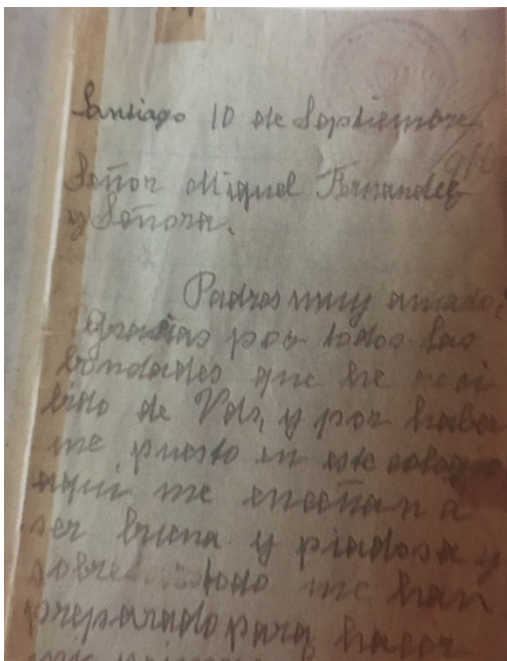 Santiago 10 de Septiembre/
910
Señor Miguel Fernandez
y Señora.
Padres muy amados;
Gracias por todos las
bondades que he reci
bido de Vds, y por haber
me puesto en este colegio
aqui me enseñan a
ser buena y piadosa y
sobre todo me han
preparado para hacer